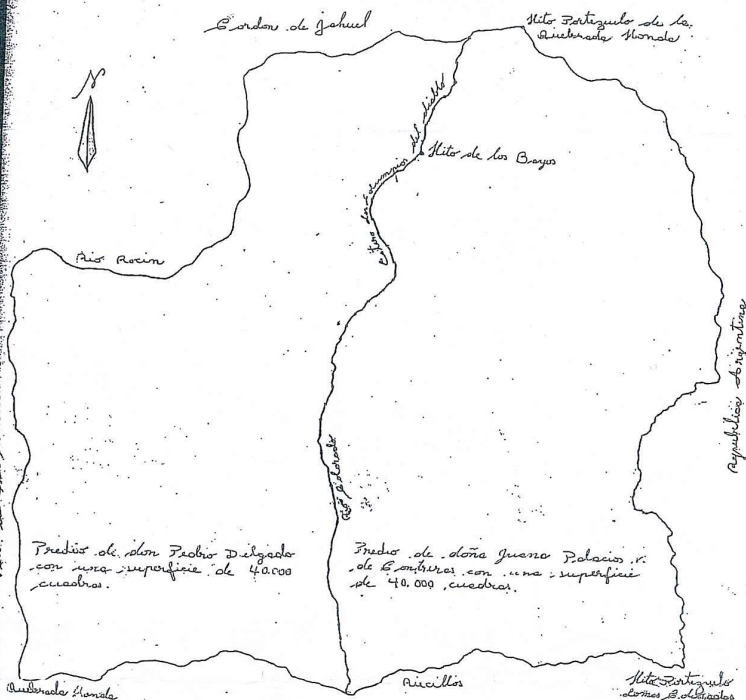 Cordon de Jahuel
Hito Portezuelo de la
Quebrada Honda
N
Estero los Columpios del diablo
Hito de los Bayos
Rio Rocin
Republica Argentina
Rio Colorado
Predio de don Pedro Delgado
con una superficie de 40.000
cuadras.
Predio de doña Juana Palacios v.
de Contreras con una superficie
de 40.000 cuadras.
Quebrada Honda
Riecillos
Hito Portezuelo
Lomas Coloradas